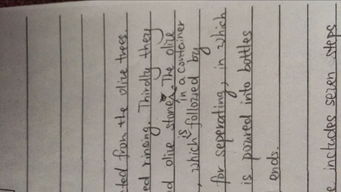 ted from the olive trees.
ed rinsing. Thirdly they
d olive stones. The olive
in a container
, which is followed by
for seperating, in which
is poured into bottles
ends.
e includes seven steps